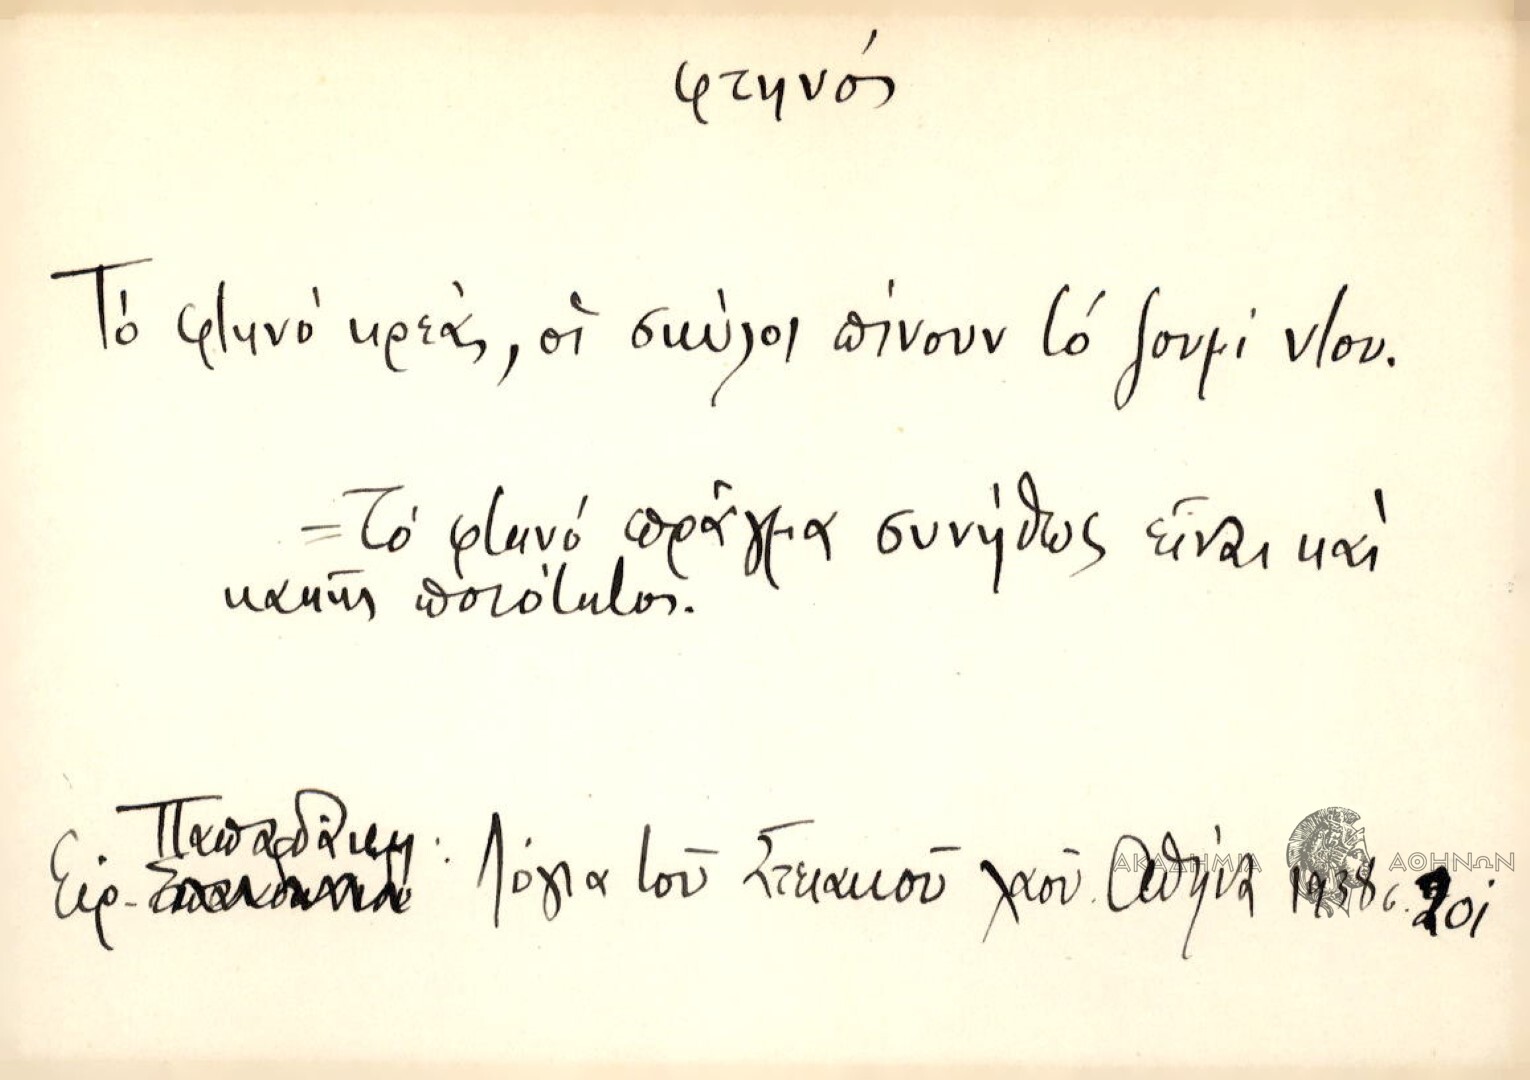 φτηνός
Τό φτηνό κρεάς, οἱ σκύλοι πίνουν τό ζουμί ντου.
=Τό φτηνό πρᾶγμα συνήθως εἶναι καί
κακῆς ποιότητος.
Παπαδάκη
Εἰρ. : Λόγια τοῦ Στειακοῦ λαοῦ. Ἀθήνα 1938 σ. 201
ΑΚΑΔΗΜΙΑ ΑΘΗΝΩΝ